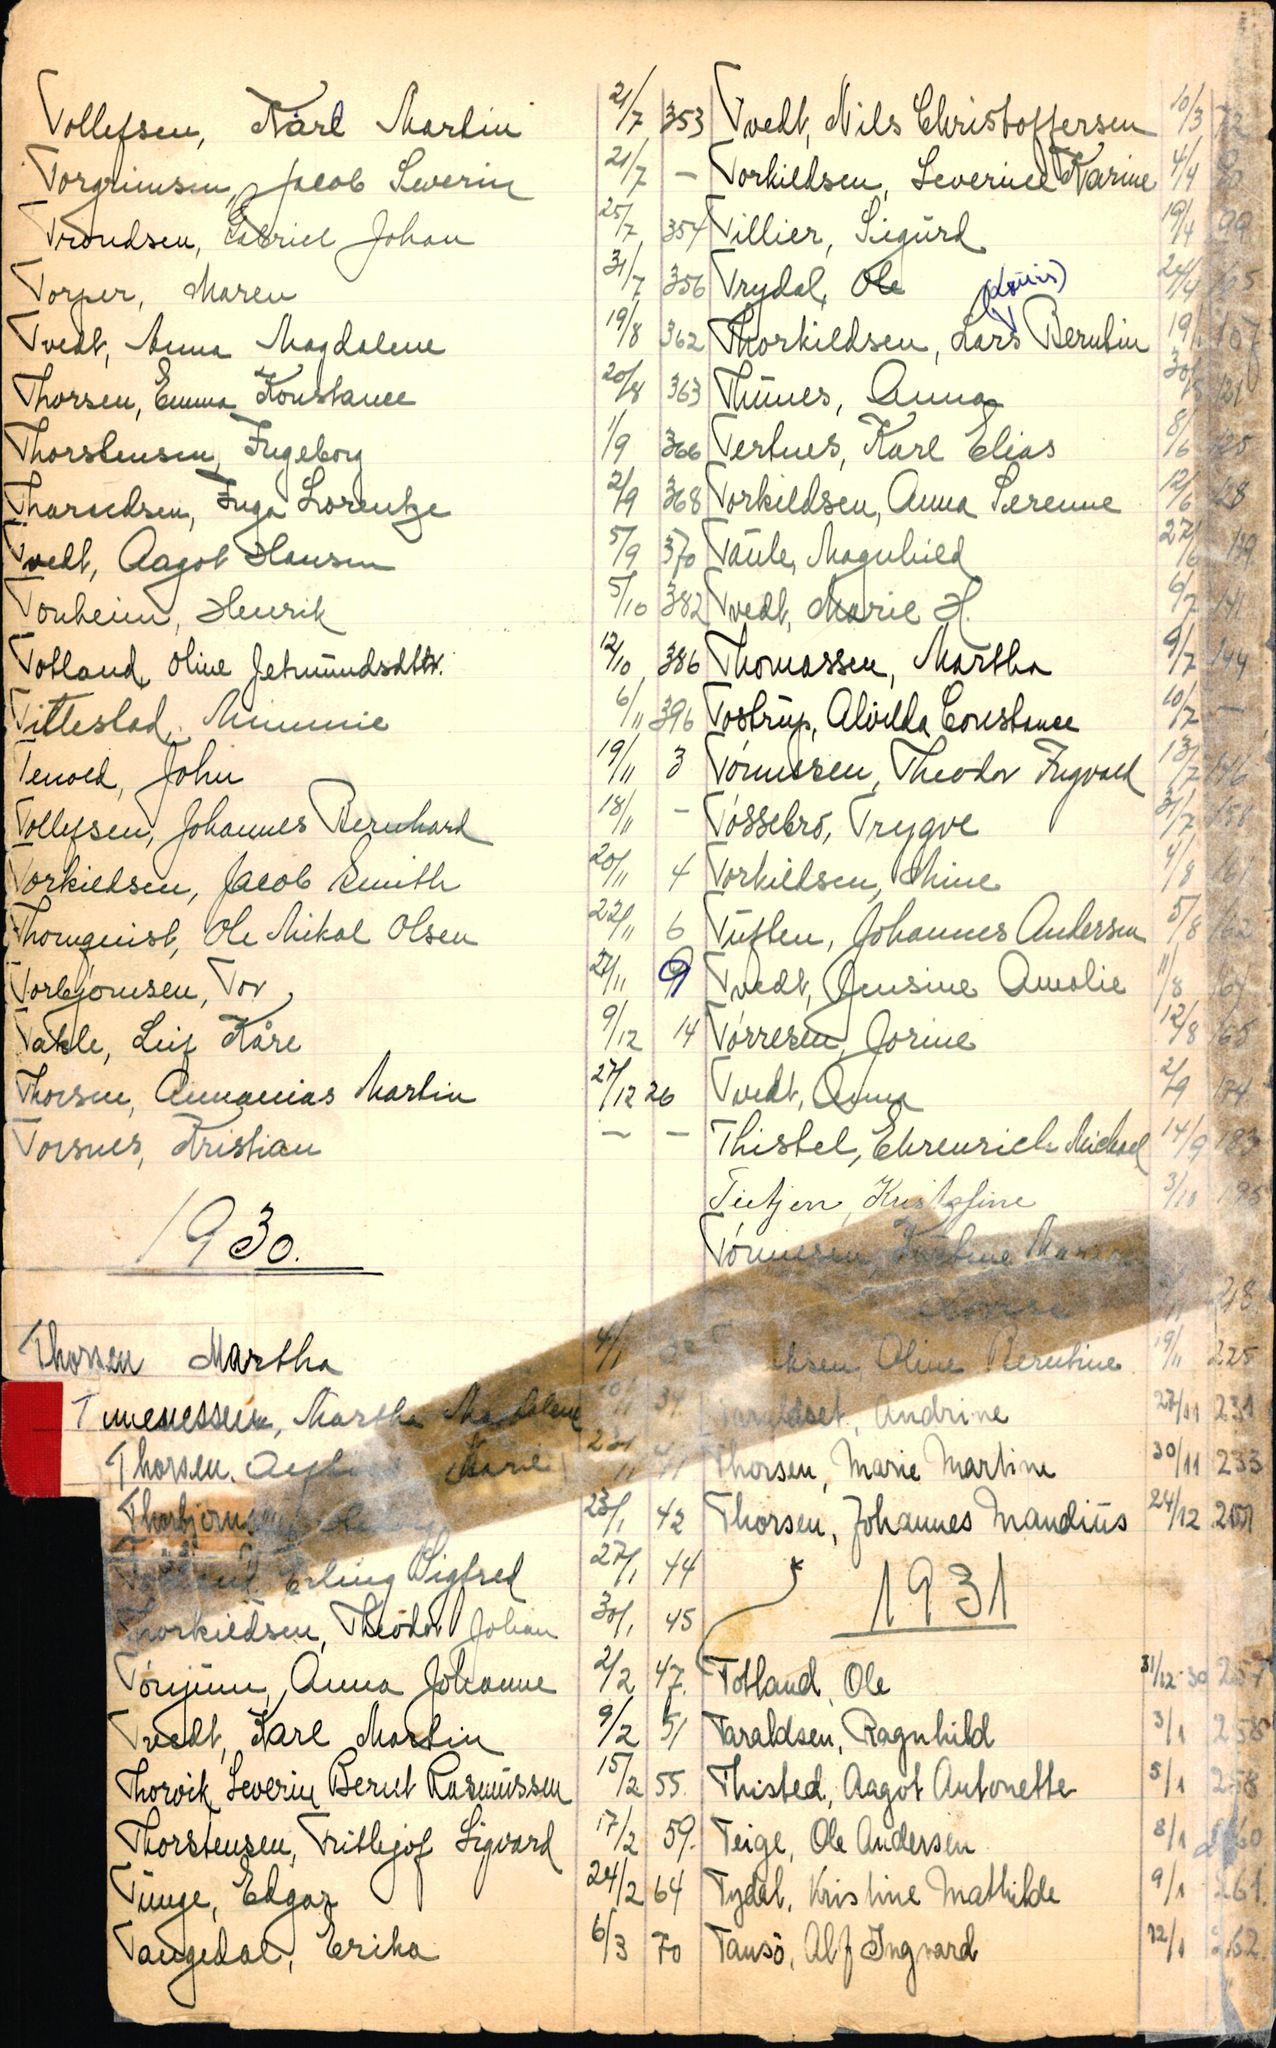 Tollefsen, Karl Martin 21/7 353
Torgrimsen, Jacob Severin 21/7 –
Trondsen, Gabriel Johan 25/7 354
Torper, Maren 31/7 356
Tvedt, Anna Magdalene 19/8 362
Thorsen, Emma Konstance 20/8 363
Thorstensen, Ingeborg 1/9 366
Tharaldsen, Inga Lorentze 2/9 368
Tvedt, Aagot Hansen 5/9 370
Tonheim, Henrik 5/10 382
Totland, Oline Jetmundsdttr. 12/10 386
Tittestad, Mimmie 6/11 396
Tenold, John 19/11 3
Tollefsen, Johannes Bernhard 18/11 –
Torkildsen, Jacob Smith 20/11 4
Thornquist, Ole Nikal Olsen 22/11 6
Torbjørnsen, Tor 27/11 9
Takle, Leif Kåre 9/12 14
Thorsen, Annanias Martin 27/12 26
Torsnes, Kristian – –
1930.
Thorsen Martha 4/1
Martha 34
Thorsen, Marie 41
23/1 42
Erling Sigfred 27/1 44
Thorkildsen, Theodor Johan 30/1 45
Tørjum, Anna Johanne 2/2 47.
Tvedt, Karl Martin 9/2 51
Thorvik, Severin Bernt Rasmussen 15/2 55.
Thorstensen, Frithjof Sigvard 17/2 59.
Tunge, Edgar 24/2 64
Tangedal, Erika 6/3 70
Tvedt, Nils Christoffersen 10/3 72
Torkildsen, Severine Karine 4/4
Tillier, Sigurd 19/4 99
Trydal, Ole 24/4 105
(Louis)
Thorkildsen, Lars Berntin 19/ 107
Thunes, Anna 30/5 121
Tertnes, Karl Elias 8/6 125
Torkildsen, Anna Serenne 12/6 128
Taule, Magnhild 27/6 139
Tvedt, Marie H. 6/7 141
Thomassen, Martha 9/7 144
Tostrup, Alvilda Constance 10/7 –
Tønnesen, Theodor Ingvald 13/7 146
Tøssebrø, Trygve 31/7 158
Torkildsen, Mine 4/8 161
Tuften, Johannes Andersen 5/8 162
Tvedt, Jensine Amalie 11/8 164
Tørresen, Jorine 12/8 165
Tvedt, Anna 2/9 174
Thistel, Ehrenrich Michael 14/9 183
Tietjen, Kristofine 3/10 195
Tønnesen, 218
Oline Berntine 19/11 225
Andrine 27/11 231
Thorsen, Marie Martine 30/11 233
Thorsen, Johannes Mandius 24/12 251
1931
Totland, Ole 31/12-30 257
Taraldsen, Ragnhild 3/1 258
Thisted, Aagot Antonette 5/1 258
Teige, Ole Andersen 8/1 260
Tydal, Kristine Mathilde 9/1 261.
Tansø, Alf Ingvard 12/1 262.